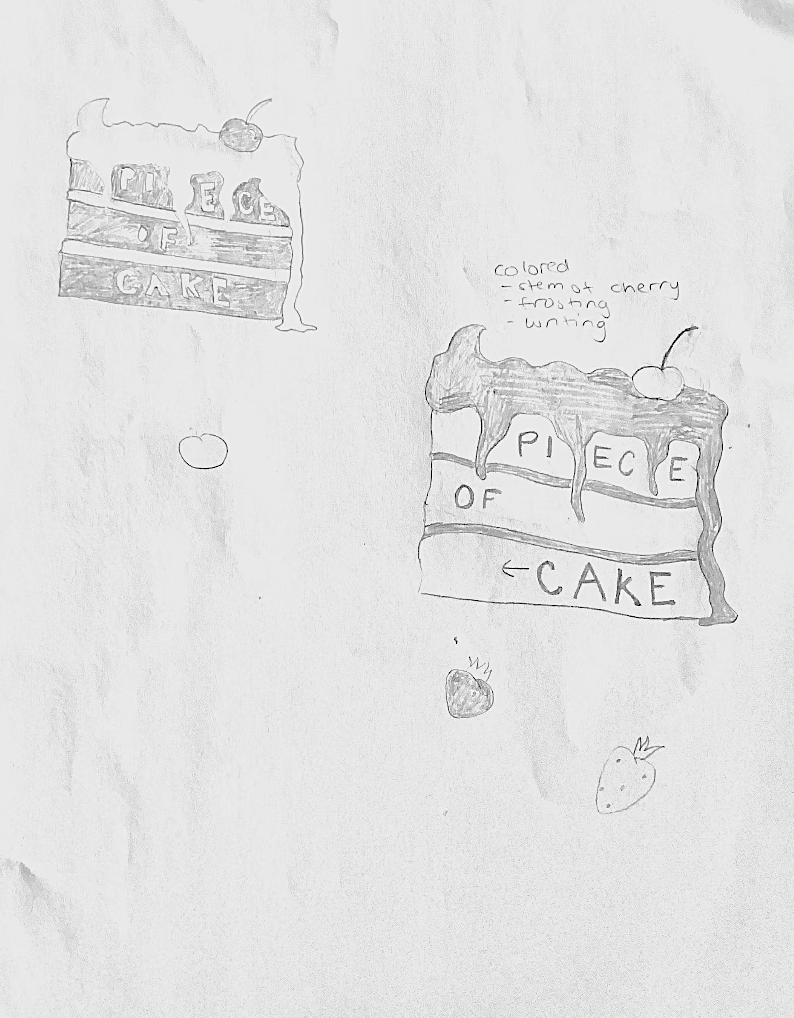 PIECE
OF
CAKE
colored
- stem of cherry
- frosting
- writing
PIECE
OF
← CAKE